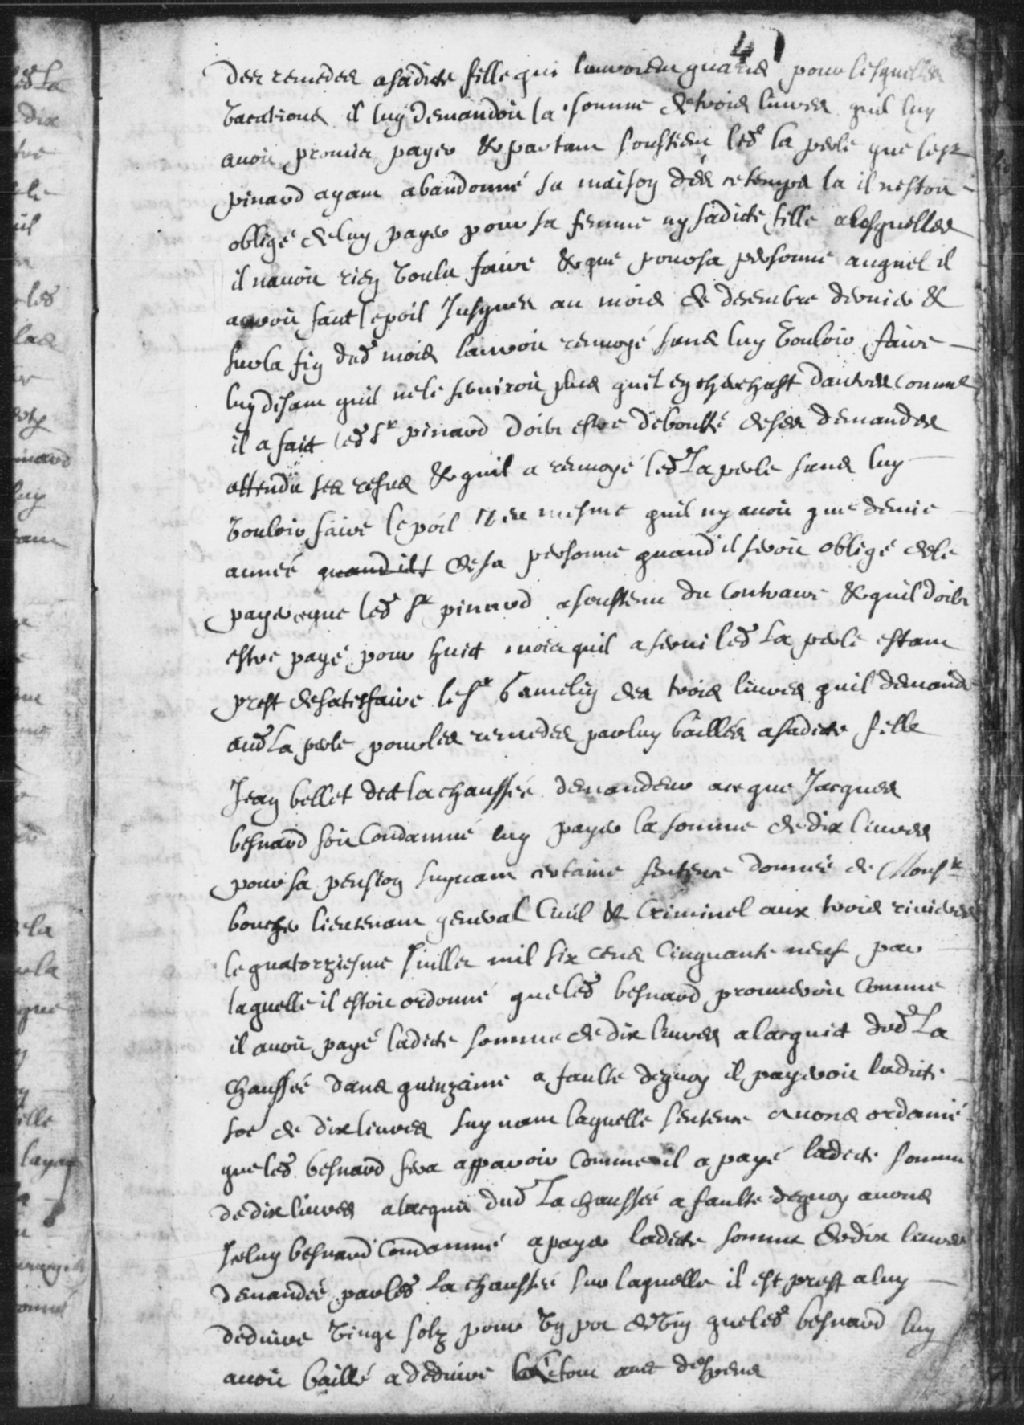 des remedes a sadicte fille qui lauroient guarie pour lesquelles
vacations il luy demandoit la somme de trois livres quil luy
avoit promis payer & partant soustient led la perle que le sr
pinard ayant abandonné sa maison dès ce temps la il nestoit
obligé de luy payer pour sa femme ny sadicte fille ausquelles
il navoit rien voulu faire & que pour sa personne auquel il
auroit faict le poil Jusques au mois de decembre dernier &
sur la fin dud mois lauroit renvoyé sans luy vouloir faire
luy disant quil ne le serviroit plus quil en cherchast dautres comme
il a faict led sr pinard doibt estre debouté de ses demandes
attendu ses refus & quil a renvoyé led La perle sans luy
vouloir faire le poil mesme quil ny avoit que demie
année quand il de sa personne quand il seroit obligé de le
payer que led sr pinard a soustenu du contraire & quil doibt
estre payé pour huict mois quil a servi led La perle estant
prest de satisfaire le sr Gamelin des trois livres quil demande
aud La perle pour les remedes par luy baillés a sadicte fille
Jean bellet dit la chaussée demandeur a ce que Jacques
besnard soit Condamné luy payer la somme de dix livres
pour sa pension suyvant certaine sentence donnée de Monsr
boucher lieutenant general Civil & Criminel aux trois rivieres
le quatorziesme Juillet mil six cens Cinquante neuf par
laquelle il estoit ordonné que led besnard prouveroit Comme
il avoit payé ladicte somme de dix livres a lacquict dud La
chaussée dans quinzaine a faulte dequoy il payeroit ladicte
soe de dix livres suyvant laquelle sentence avons ordonné
que led besnard fera apparoir Comme il a payé ladicte somme
de dix livres a lacquit dud La chaussée a faulte dequoy avons
Iceluy besnard Condamné a payer ladicte somme de dix livres
demandée par led La chaussée sur laquelle il est prest a luy
deduire vingt solz pour un pot de vin que led besnard luy
avoit baillé a deduire le tout avec despens